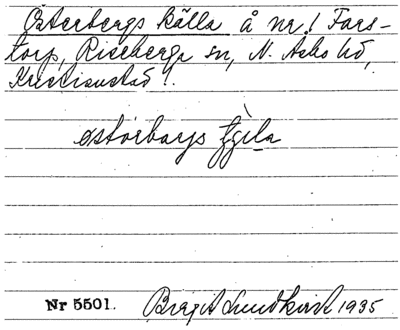 Österbergs källa å nr 1 Fars-
torp, Riseberga sn, N. Åsbo hd,
Kristianstad l.
östərbarys ʃjɛla
Nr 5501. Birgit Lundkvist 1935